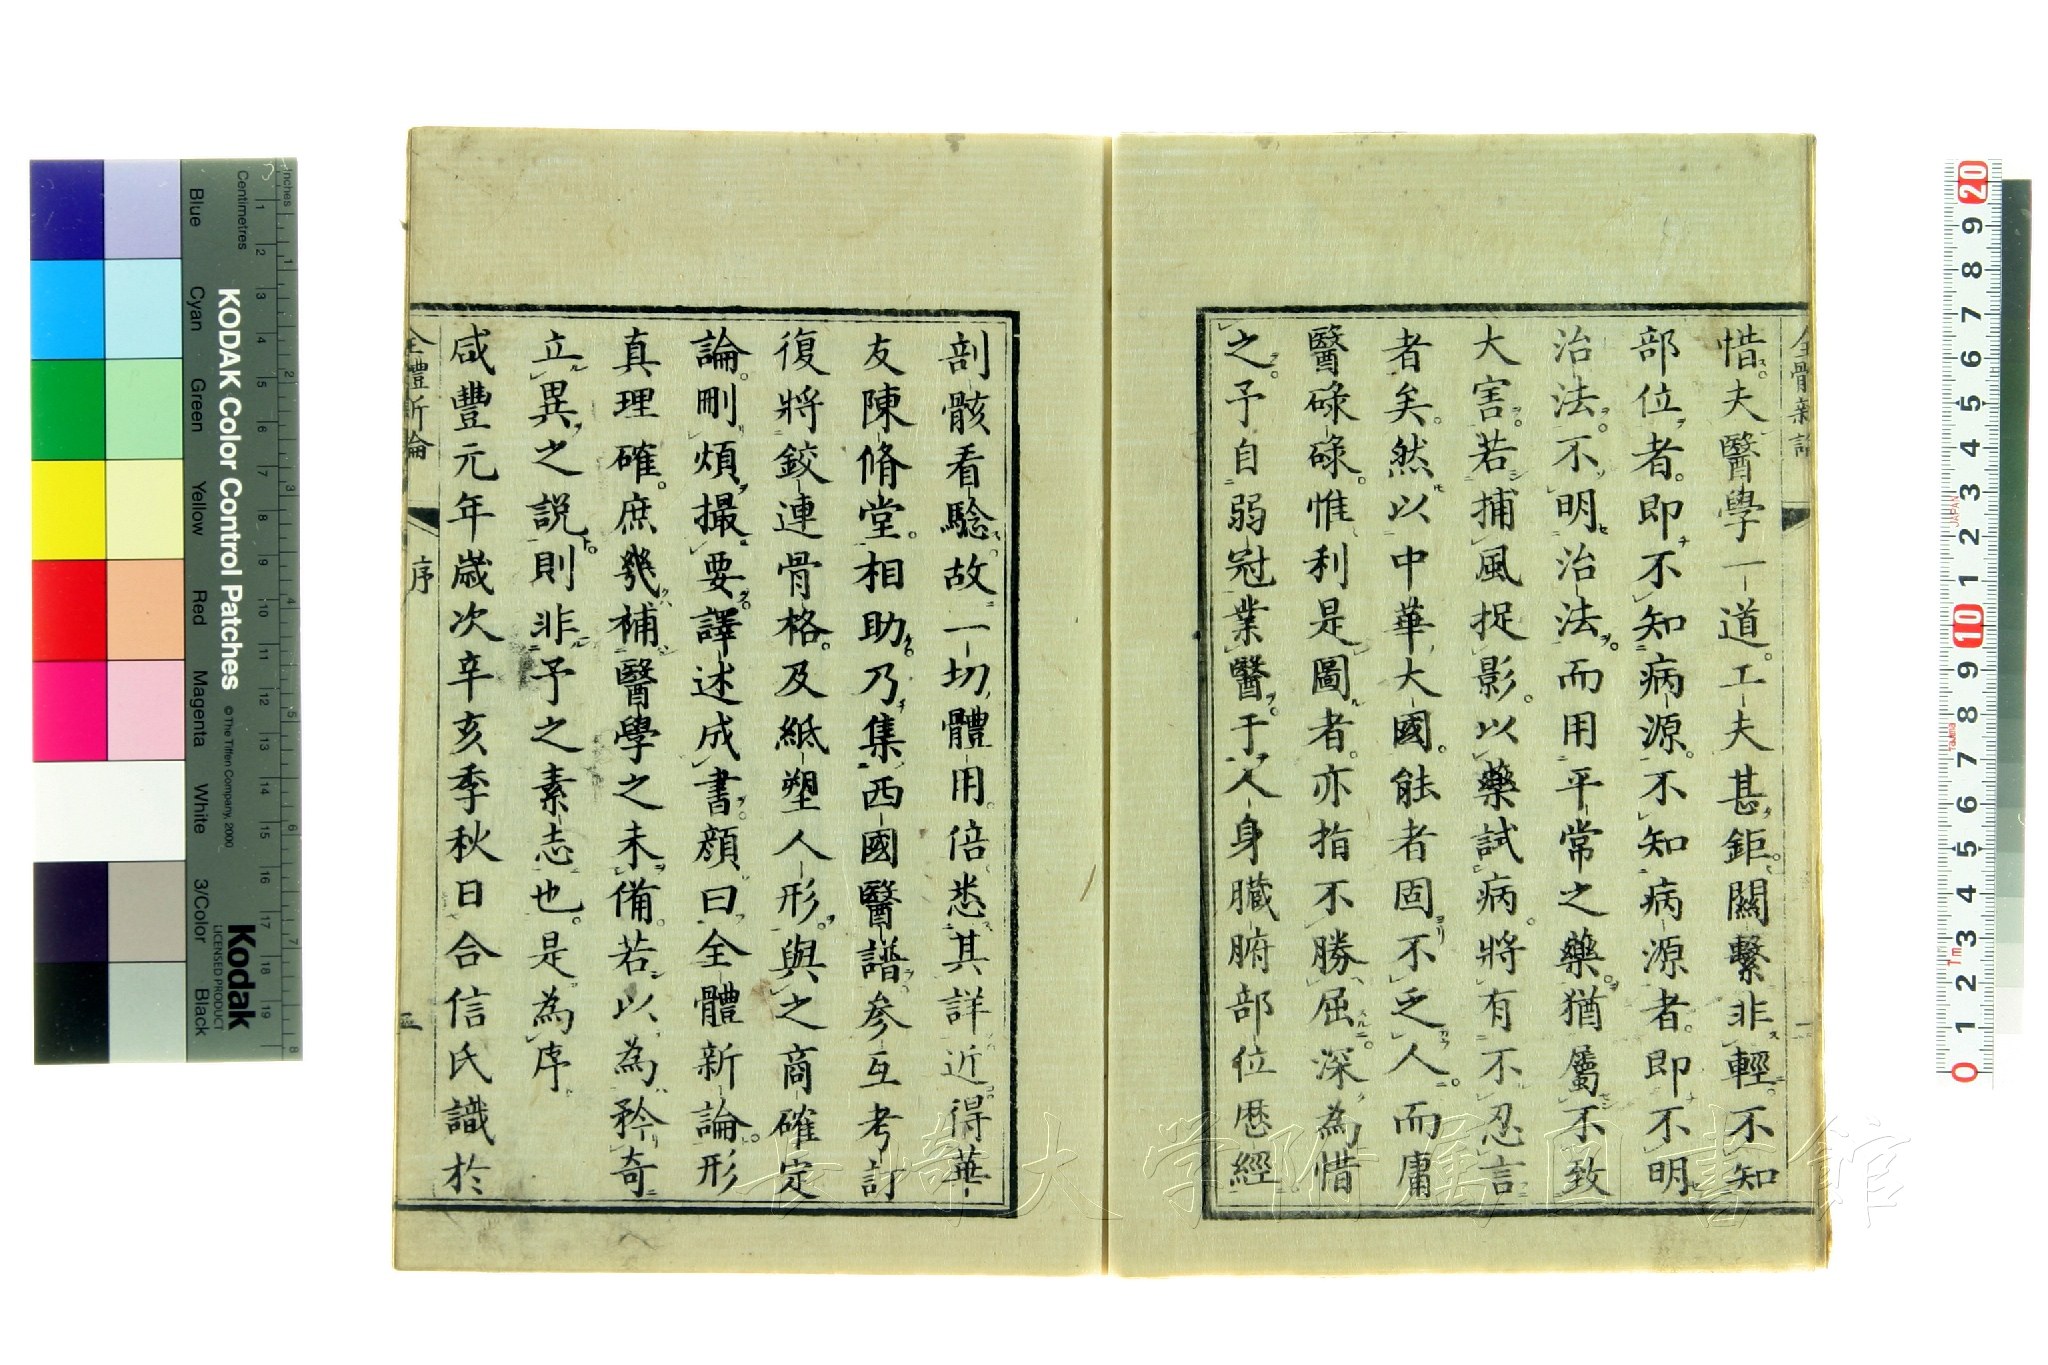 惜。夫醫學一道。工夫甚鉅。關繫非輕。不知
部位者。即不知病源。不知病源者。即不明
治法。不明治法。而用平常之藥。猶屬不致
大害。若捕風捉影。以藥試病。將有不忍言
者矣。然以中華大國。能者固不乏人。而庸
醫碌碌。惟利是圖者。亦指不勝屈。深為惜
之。予自弱冠業醫。于人身臟腑部位。歴經
剖骸看驗。故一切體用。倍悉其詳。近得華
友陳脩堂。相助。乃集西國醫譜。參互考訂
復將鉸連骨格。及紙塑人形。與之商確定
論。刪煩撮要。譯述成書。顏曰全體新論。形
真理確。庶幾補醫學之未備。若以為矜奇
立異之説。則非予之素志也。是為序。
咸豐元年歲次辛亥季秋日合信氏識於
全體新論
序
三
長崎大学附属図書館
KODAK Color Control Patches
© The Tiffen Company, 2000
Kodak
LICENSED PRODUCT
Inches
Centimetres
Blue
Cyan
Green
Yellow
Red
Magenta
White
3/Color
Black
1 2 3 4 5 6 7 8 9 10 11 12 13 14 15 16 17 18 19
1 2 3 4 5 6 7 8
20 9 8 7 6 5 4 3 2 1 10 9 8 7 6 5 4 3 2 1 0
JAPAN